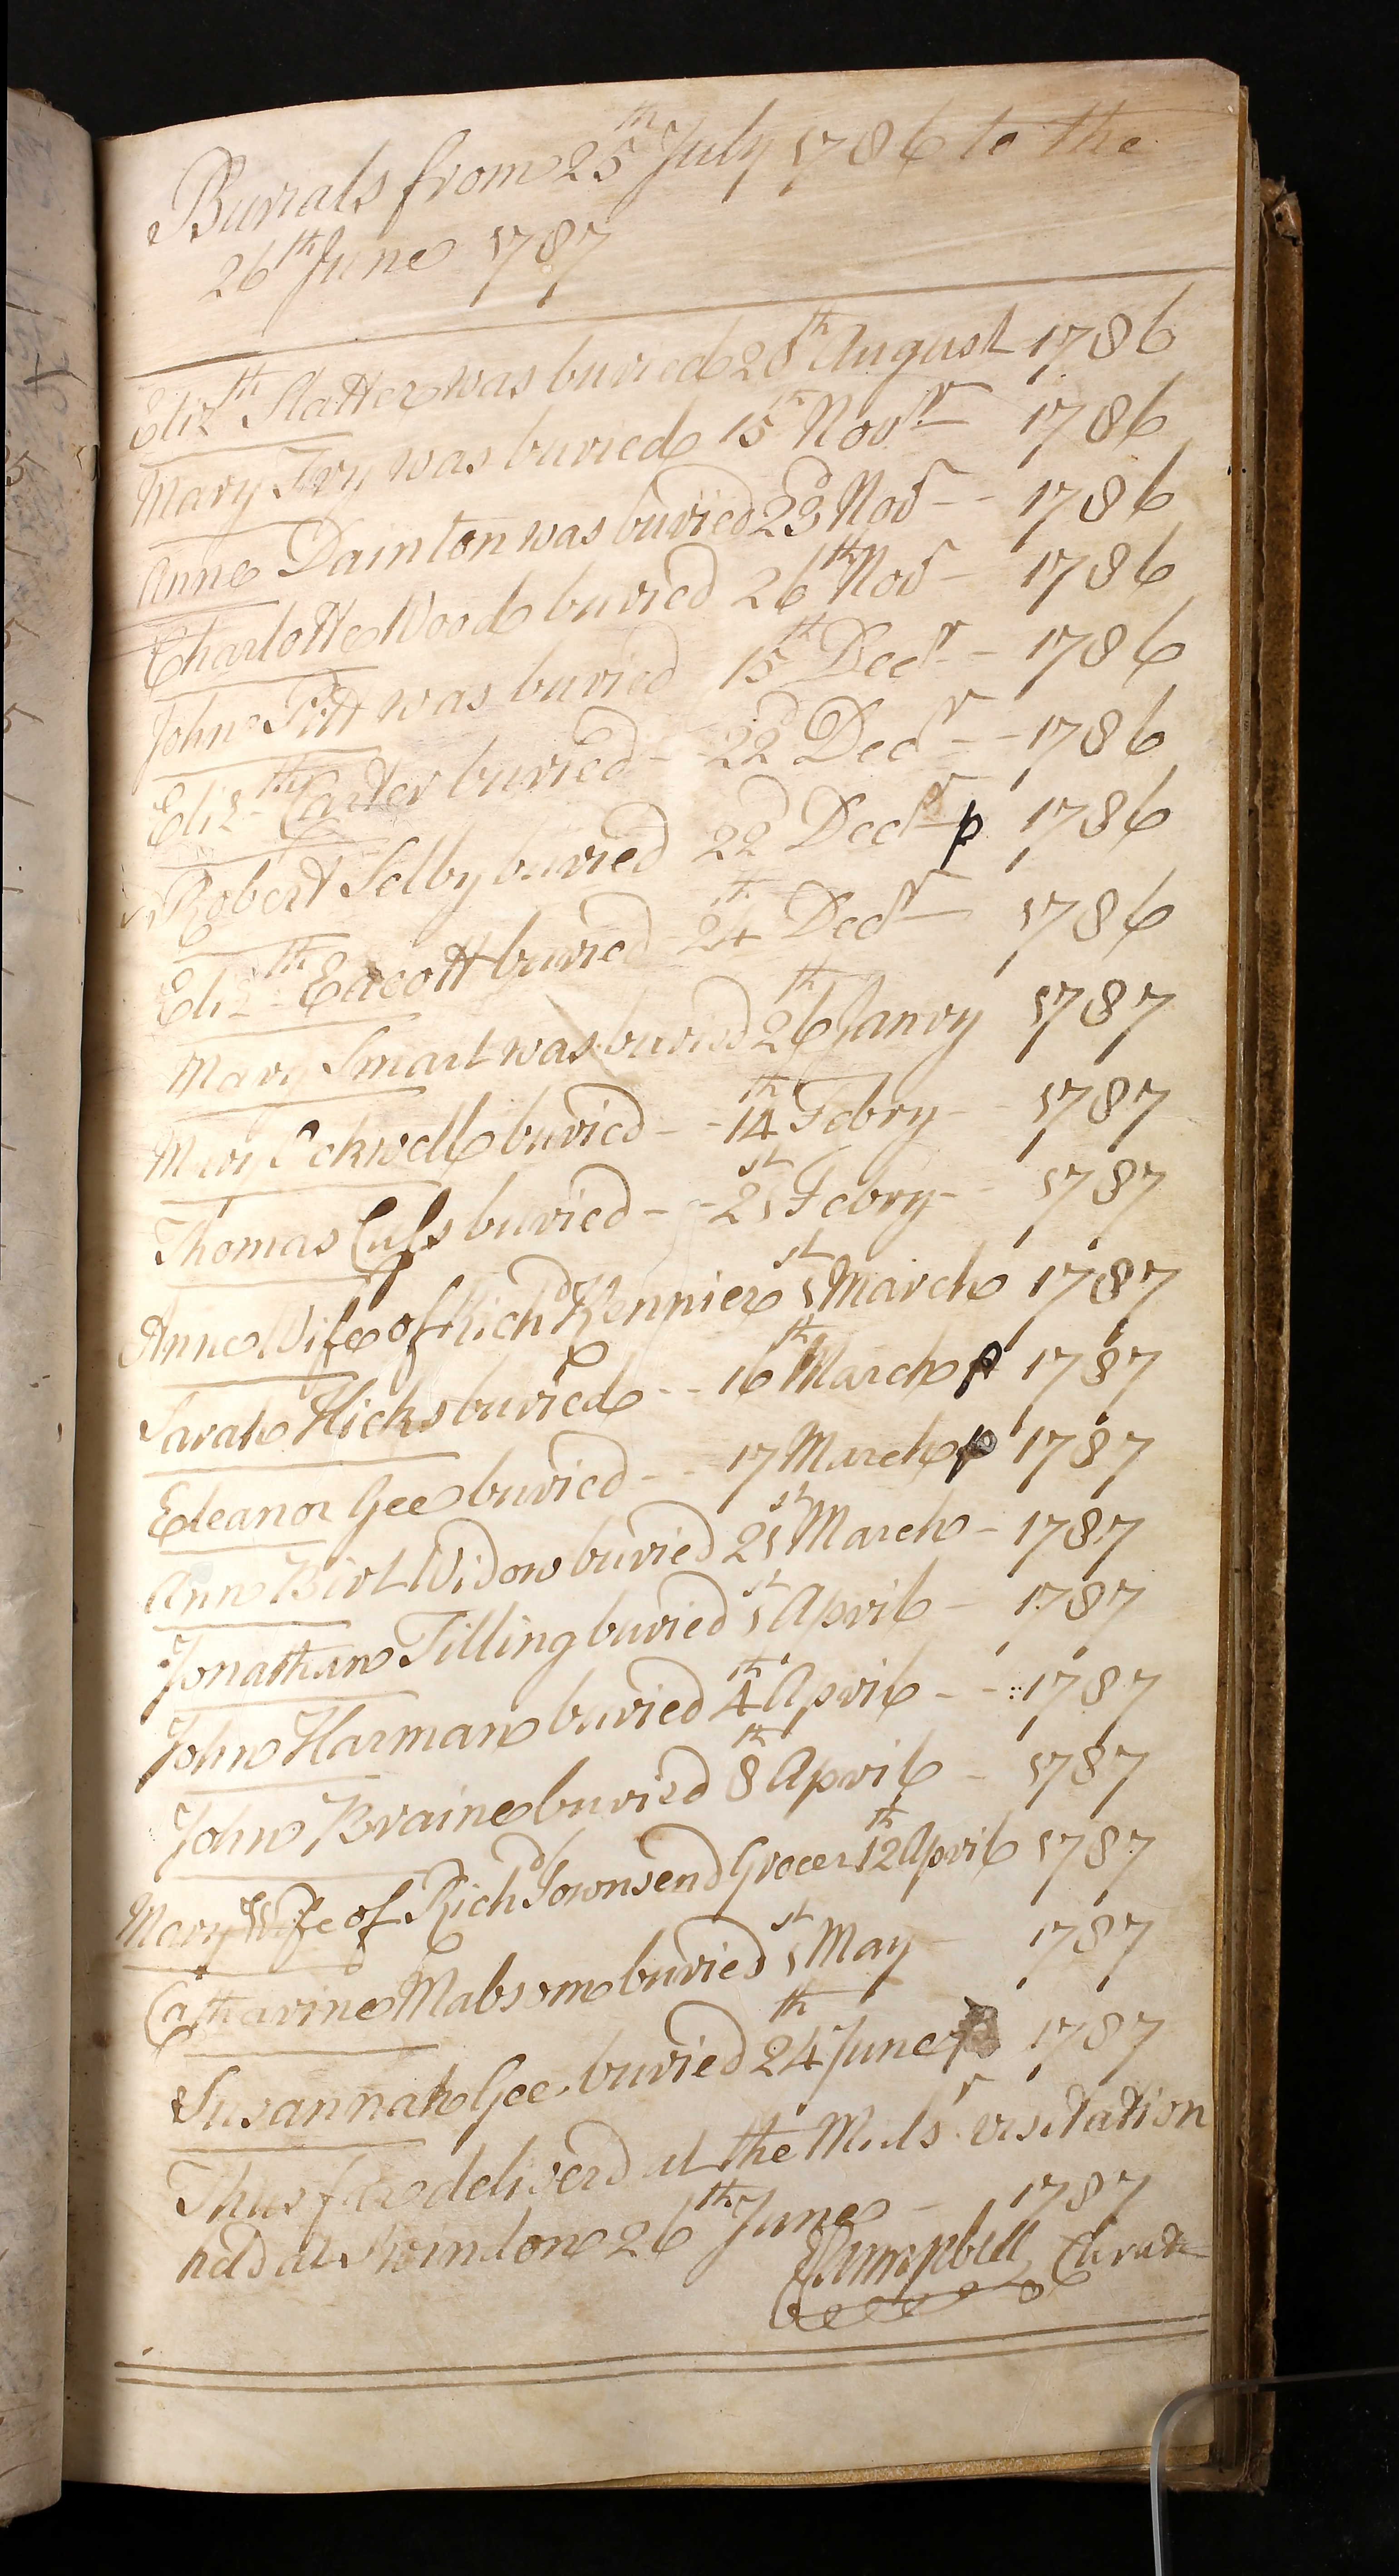 Burials from 25th July 1786 to the
26th June 1787
Elizth Slatter was buried 28th August 1786
Mary Ivy was buried 15th Novr 1786
Anne Dainton was buried 23d Novr - - 1786
Charlotte Wood buried 26th Novr - 1786
John Pitt was buried 15th Decr - - 1786
Elizth Carter buried - 22d Decr - - 1786
Robert Selby buried 22d Decr p 1786
Elizth Eacott buried 24th Decr 1786
Mary Smart was buried 26th Janry 1787
Mary Ockwell buried - - 14th Febry - 1787
Thomas Cuss buried - - 21st Febry - 1787
Anne Wife of Richd Kennier 1st March 1787
Sarah Hicks buried - - 16th March p 1787
Eleanor Gee buried - - 17 March p 1787
Ann Birt Widow buried 21st March - 1787
Jonathan Tilling buried 1st April - 1787
John Harman buried 4th April - - 1787
John Braine buried 8th April - 1787
Mary Wife of Richd Townsend Grocer 12th April 1787
Catharine Mabsom buried 1st May - 1787
Susannah Gee buried 24th June p 1787
Thus far deliverd at the visitation
held at Swindon 26th June - 1787
Campbell Curate